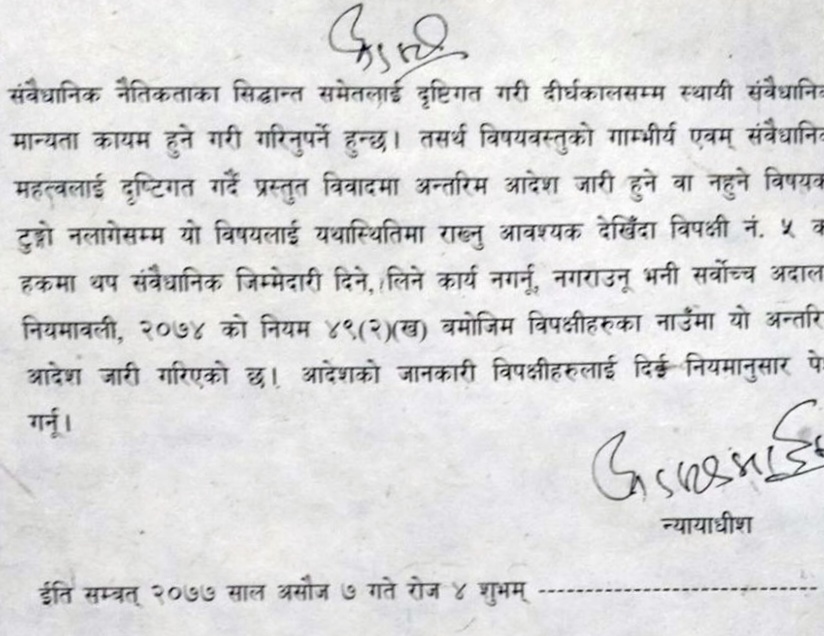 संवैधानिक नैतिकताका सिद्धान्त समेतलाई दृष्टिगत गरी दीर्घकालसम्म स्थायी संवैधानि
मान्यता कायम हुने गरी गरिनुपर्ने हुन्छ। तसर्थ विषयवस्तुको गाम्भीर्य एवम् संवैधानि
महत्वलाई दृष्टिगत गर्दै प्रस्तुत विवादमा अन्तरिम आदेश जारी हुने वा नहुने विषयक
टुङ्गो नलागेसम्म यो विषयलाई यथास्थितिमा राख्नु आवश्यक देखिँदा विपक्षी नं. ५ क
हकमा थप संवैधानिक जिम्मेदारी दिने, लिने कार्य नगर्नू, नगराउनू भनी सर्वोच्च अदाल
नियमावली, २०७४ को नियम ४९(२)(ख) बमोजिम विपक्षीहरुका नाउँमा यो अन्तरि
आदेश जारी गरिएको छ। आदेशको जानकारी विपक्षीहरुलाई दिई नियमानुसार पे
गर्नू।
न्यायाधीश
ईति सम्वत् २०७७ साल असौज ७ गते रोज ४ शुभम् -----------------------------